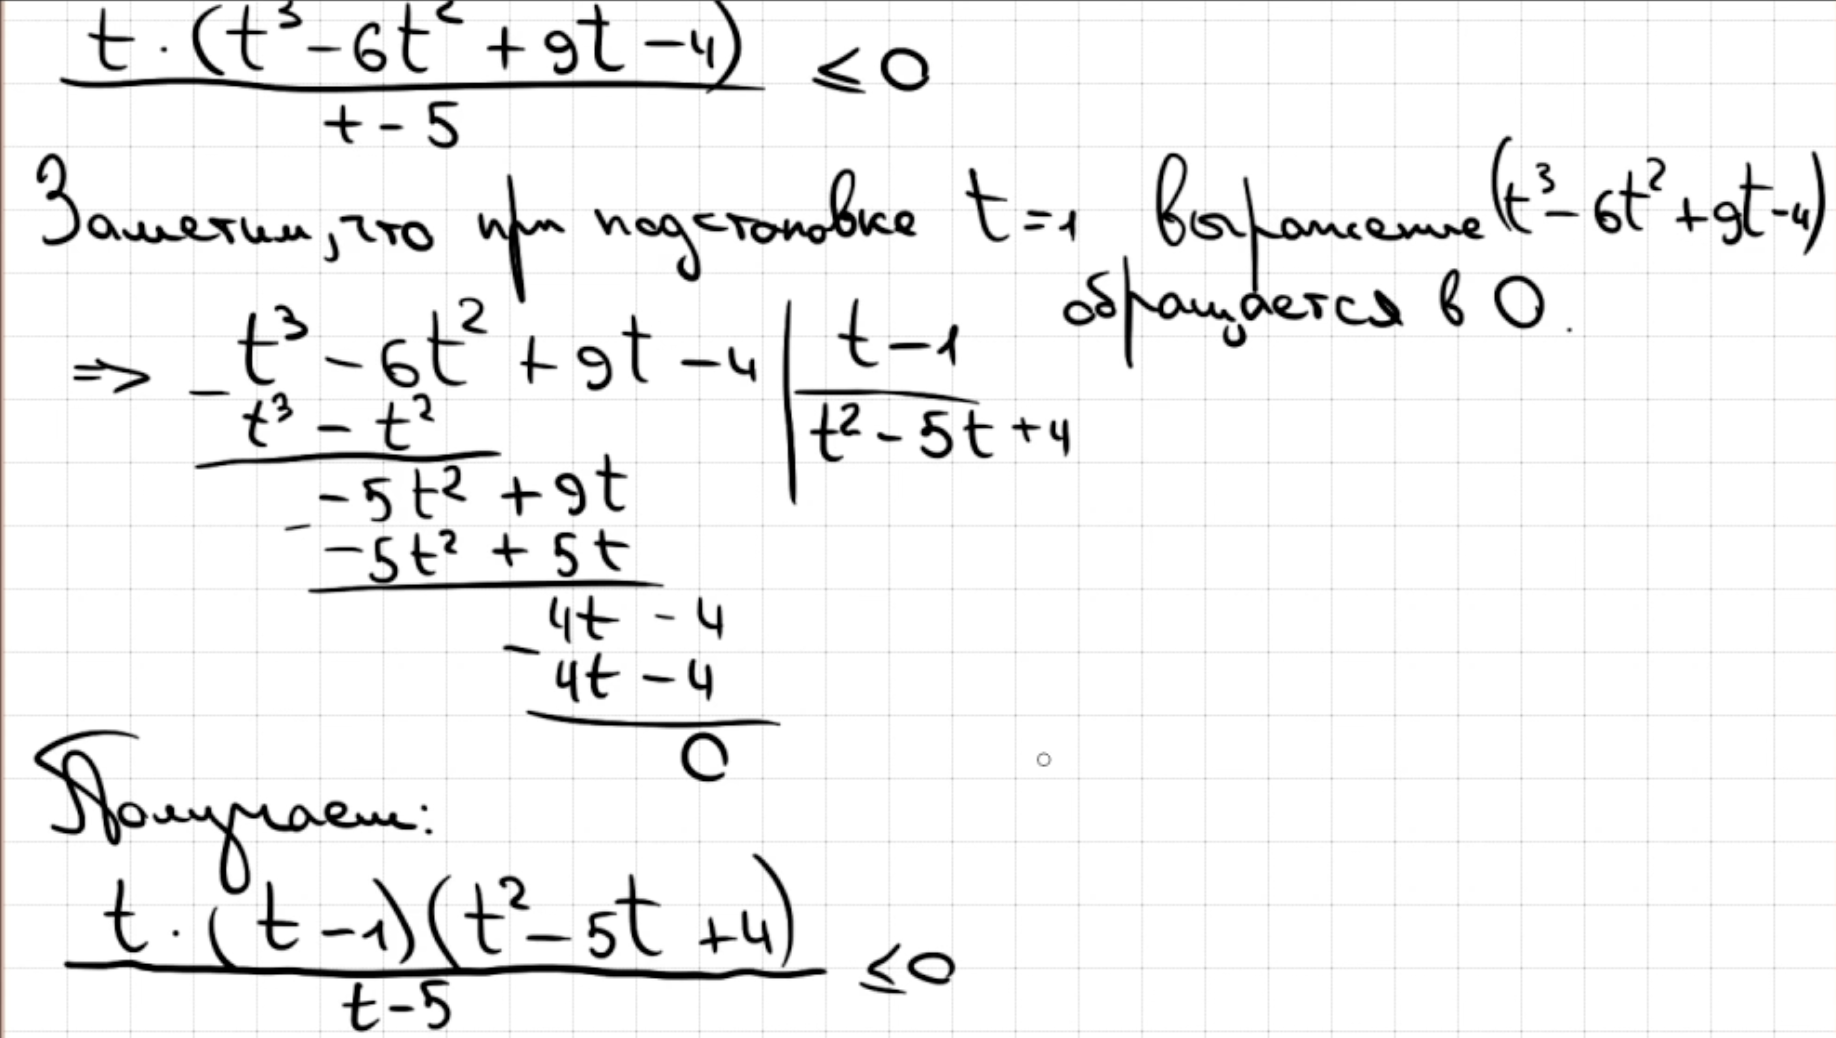 t · (t³ - 6t² + 9t - 4) ≤ 0
t - 5
Заметим, что при подстановке t=1 выражение (t³ - 6t² + 9t - 4)
обращается в 0.
=> - t³ - 6t² + 9t - 4 | t - 1
t³ - t² t² - 5t + 4
-5t² + 9t
- -5t² + 5t
4t - 4
- 4t - 4
0
Получаем:
t · (t - 1)(t² - 5t + 4) ≤ 0
t - 5